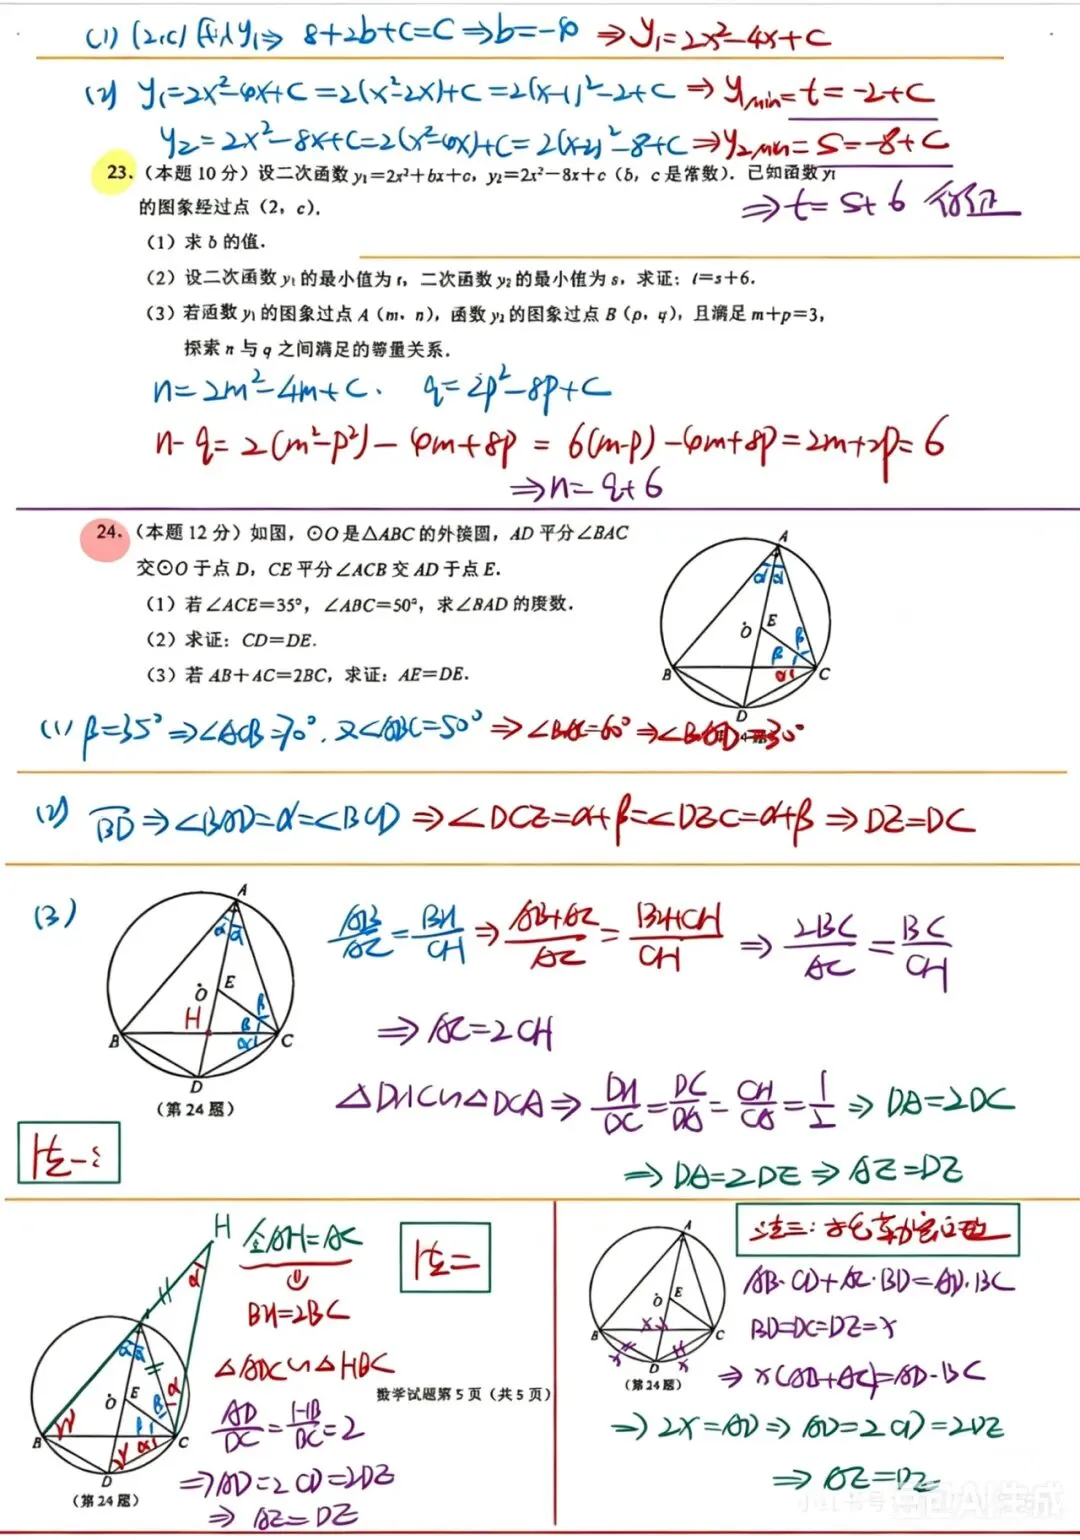 (1) (2,c) 代入y₁⇒ 8+2b+c=c ⇒b=-4 ⇒y₁=2x²-4x+c
(2) y₁=2x²-4x+c=2(x²-2x)+c=2(x-1)²-2+c ⇒ y₁min=t=-2+c
y₂=2x²-8x+c=2(x²-4x)+c=2(x-2)²-8+c ⇒y₂min=s=-8+c
⇒t=s+6 得证
23.(本题10分)设二次函数y₁=2x²+bx+c,y₂=2x²-8x+c(b,c是常数).已知函数y₁
的图象经过点(2,c).
(1)求b的值.
(2)设二次函数y₁的最小值为t,二次函数y₂的最小值为s,求证:t=s+6.
(3)若函数y₁的图象过点A(m,n),函数y₂的图象过点B(p,q),且满足m+p=3,
探索n与q之间满足的等量关系.
n=2m²-4m+c. q=2p²-8p+c
n-q=2(m²-p²)-4m+8p=6(m-p)-4m+8p=2m+2p=6
⇒n=q+6
24.(本题12分)如图,⊙O是△ABC的外接圆,AD平分∠BAC
交⊙O于点D,CE平分∠ACB交AD于点E.
(1)若∠ACE=35°,∠ABC=50°,求∠BAD的度数.
(2)求证:CD=DE.
(3)若AB+AC=2BC,求证:AE=DE.
A
α α
O E β
β
B α C
D
(1) β=35°⇒∠ACB=70°. 又∠ABC=50° ⇒∠BAC=60°⇒∠BAD=30°
(2) BD⇒∠BAD=α=∠BCD ⇒∠DCE=α+β=∠DEC=α+β ⇒DE=DC
(3)
A
α α
O E β
H β
B α C
D
(第24题)
AB/AC=BH/CH⇒(AB+AC)/AC=(BH+CH)/CH ⇒ 2BC/AC=BC/CH
⇒AC=2CH
△DHC∽△DCA⇒DH/DC=DC/DA=CH/CA=1/2⇒DA=2DC
⇒DA=2DE⇒AE=DE
法一:
H
α
α α
O E β α
β
B γ γ α C
D
(第24题)
全AH=AC
⇓
BH=2BC
△ADC∽△HBC
AD/DC=HB/BC=2
⇒AD=2CD=2DE
⇒AE=DE
法二
数学试题第5页(共5页)
A
O E
B x C
x x
D
(第24题)
法三:托勒密定理
AB·CD+AC·BD=AD·BC
BD=DC=DE=x
⇒x(AB+AC)=AD·BC
⇒2x=AD⇒AD=2CD=2DE
⇒AE=DE
豆包AI生成